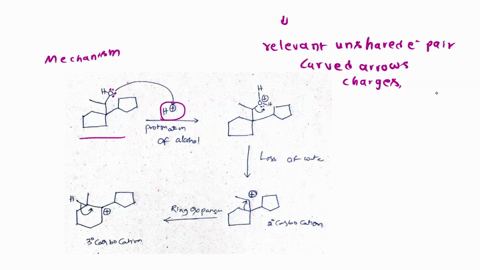 relevant unshared e⁻ pair
Mechanism
curved arrows
charges,
H
H
H⊕
⊕
H
protonation
of alcohol
Loss of
⊕
Ring
2° Carbo cation
H
⊕
3° Carbo Cation